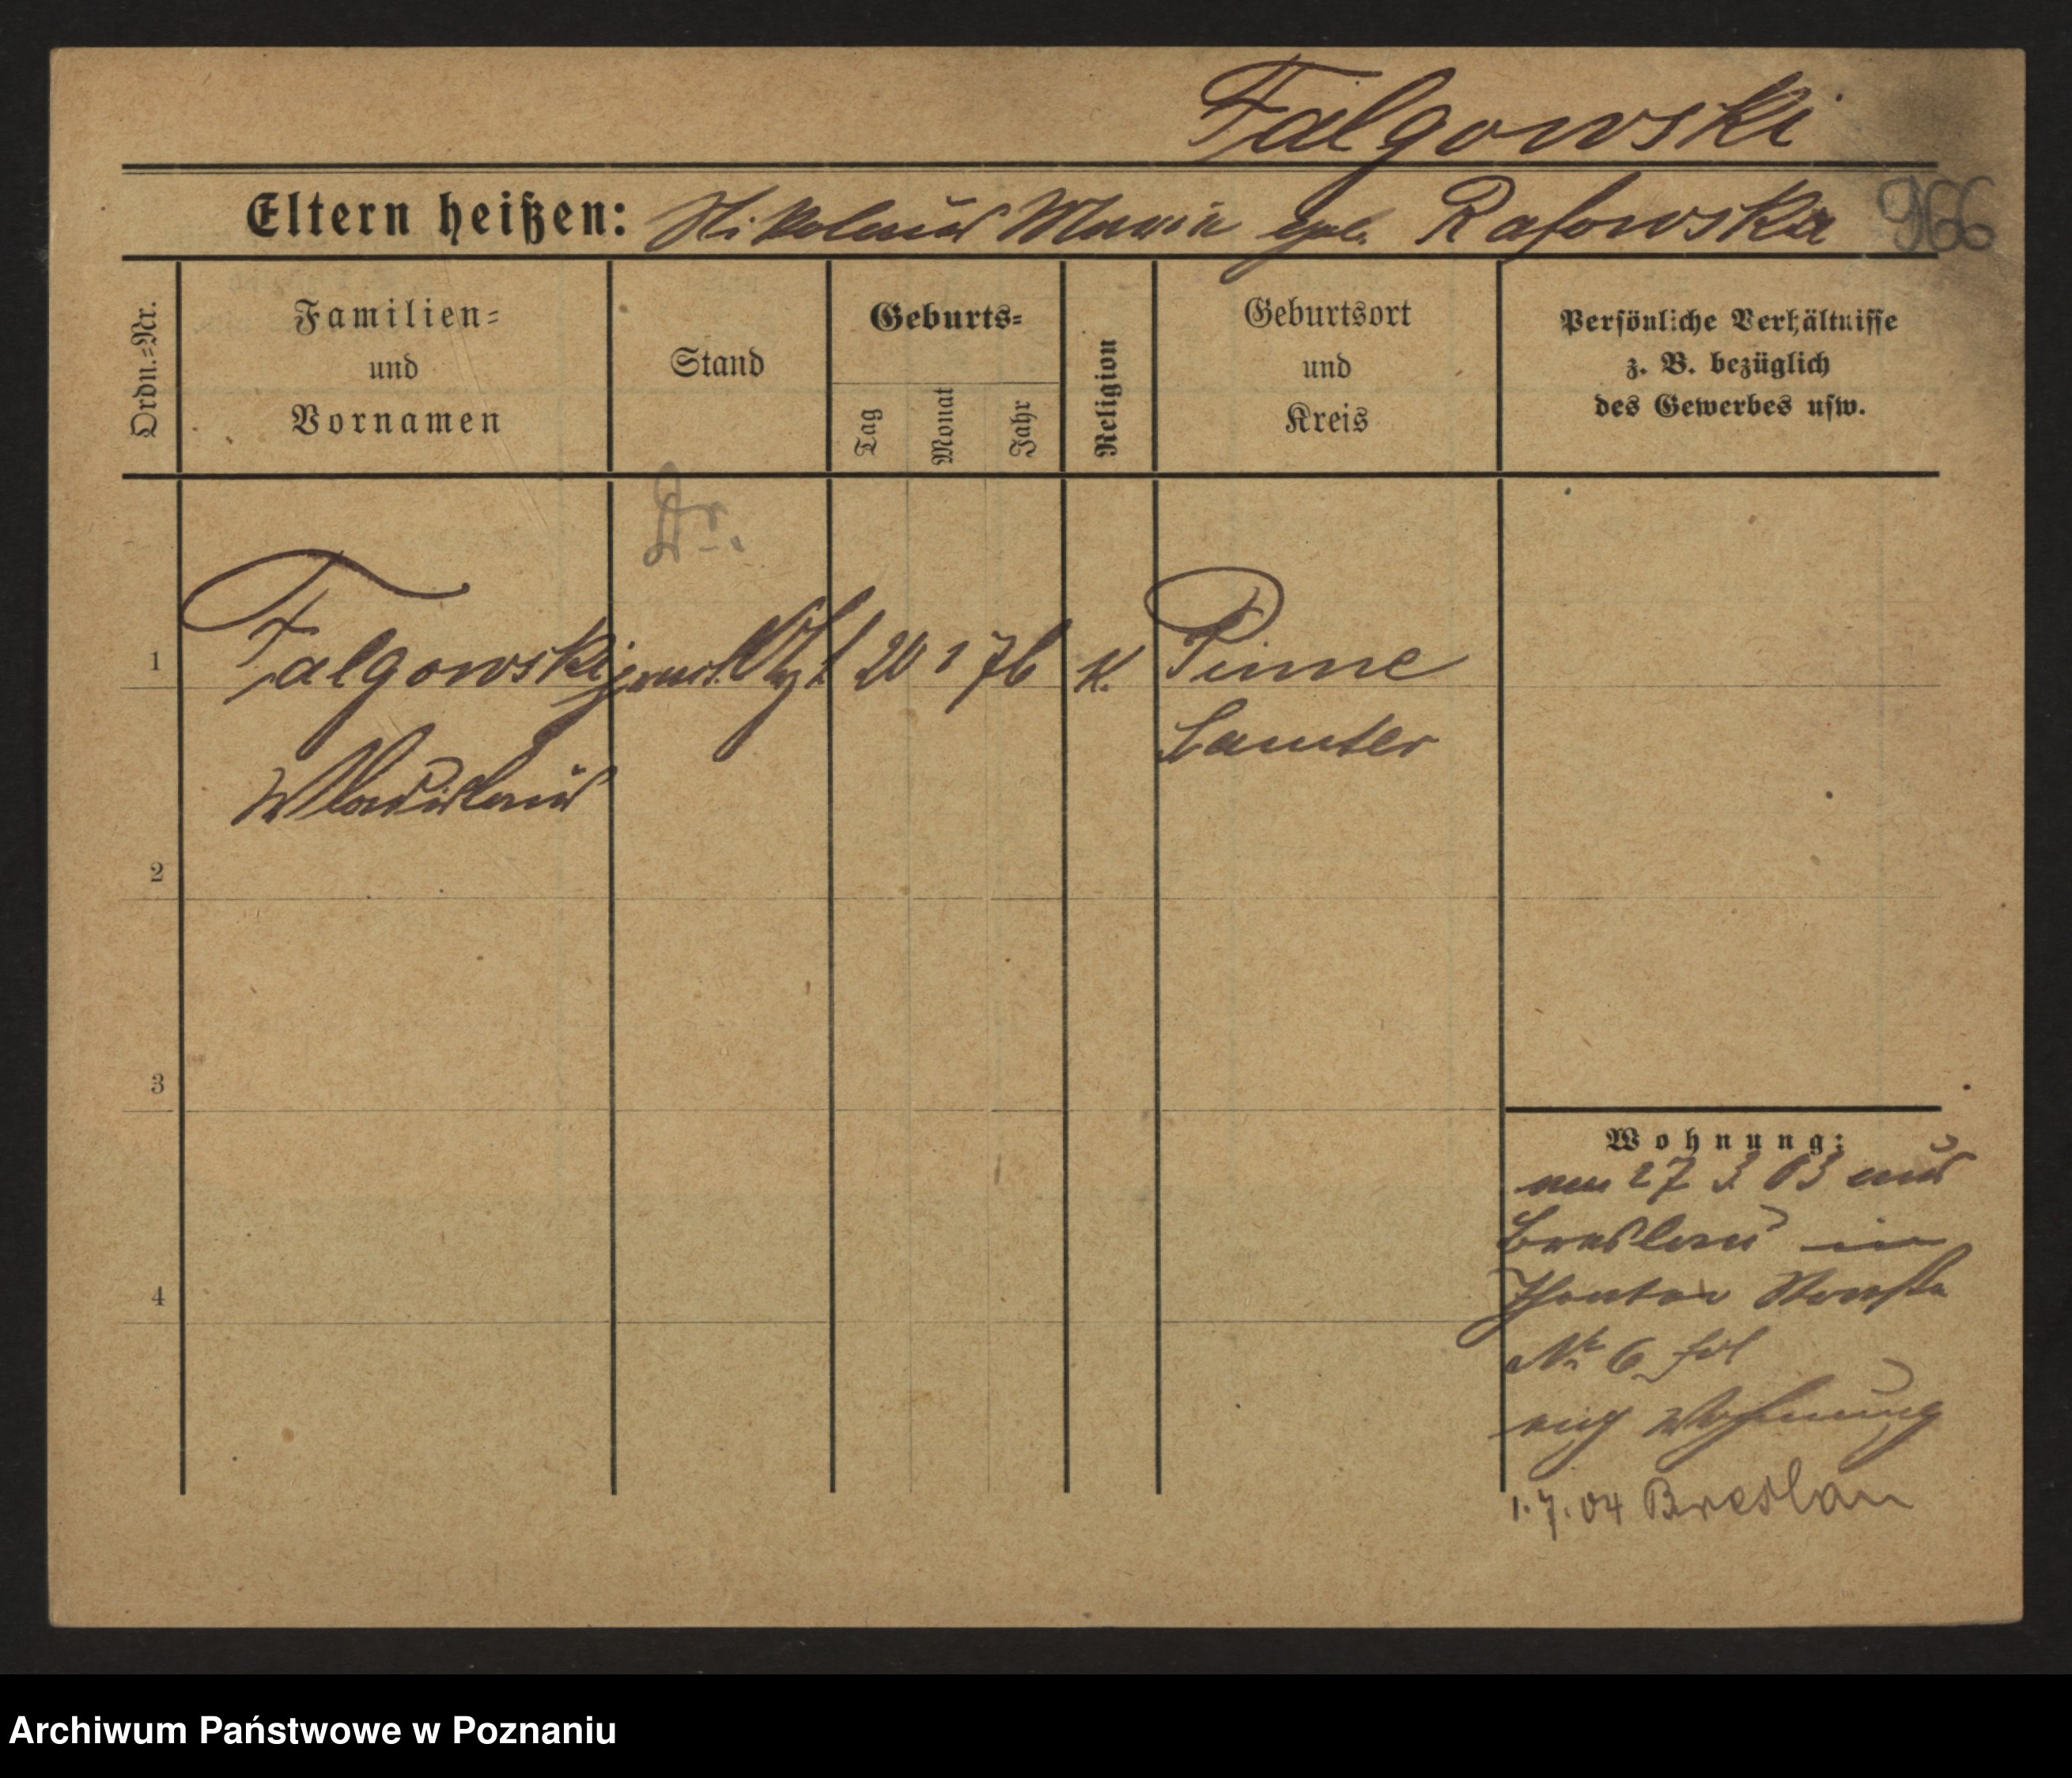 Falgowski
Eltern heißen: Nikolaus Maria geb. Rafowska 966
Ordn.=Nr.
Familien=
und
Vornamen
Stand
Geburts=
Tag
Monat
Jahr
Religion
Geburtsort
und
Kreis
Persönliche Verhältnisse
z. B. bezüglich
des Gewerbes usw.
Dr.
1 Falgowski 20 1 76 K. Pinne
Samter
Wladislaus
2
3
4
Wohnung:
am 27 3 03 aus
Breslau in
No 6
Wohnung
1.7.04 Breslau
Archiwum Państwowe w Poznaniu